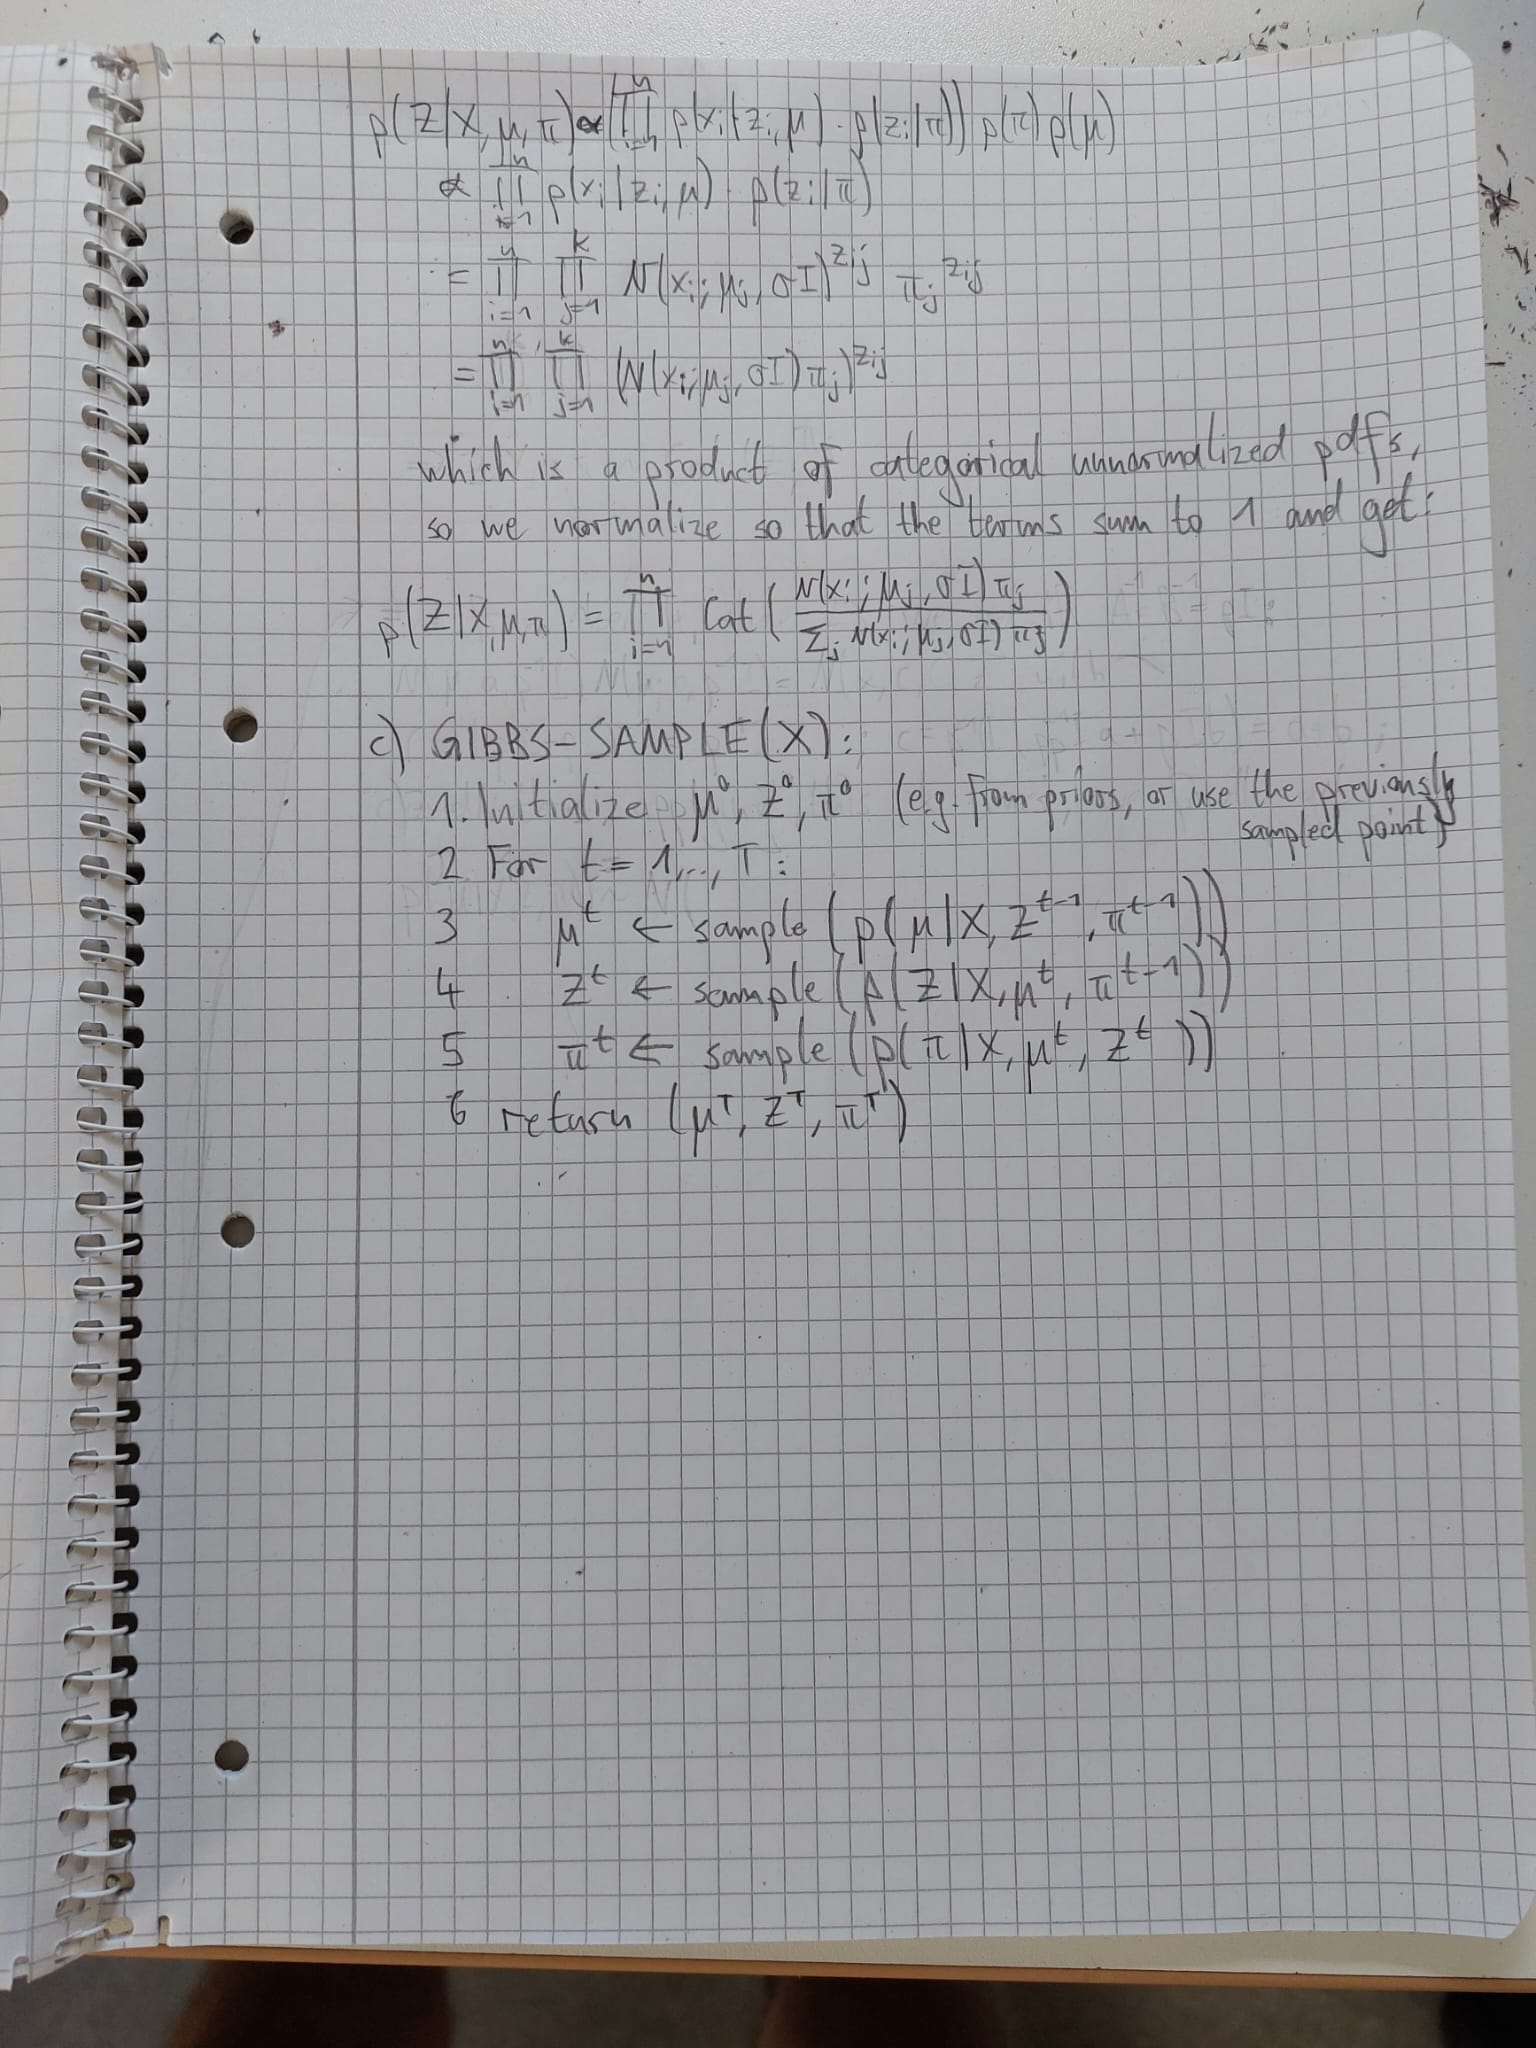 p(Z|X, μ, π) ∝ (∏_{i=1}^{n} p(x_i|z_i, μ) · p(z_i|π)) p(π) p(μ)
∝ ∏_{i=1}^{n} p(x_i|z_i, μ) · p(z_i|π)
= ∏_{i=1}^{n} ∏_{j=1}^{k} N(x_i; μ_j, σI)^{z_ij} π_j^{z_ij}
= ∏_{i=1}^{n} ∏_{j=1}^{k} (N(x_i; μ_j, σI) π_j)^{z_ij}
which is a product of categorical unnormalized pdfs,
so we normalize so that the terms sum to 1 and get:
p(Z|X, μ, π) = ∏_{i=1}^{n} Cat( N(x_i; μ_j, σI) π_j / Σ_j N(x_i; μ_j, σI) π_j )
c) GIBBS-SAMPLE(X):
1. Initialize μ^0, Z^0, π^0 (e.g. from priors, or use the previously
sampled point)
2 For t = 1,..., T:
3 μ^t ← sample (p(μ|X, Z^{t-1}, π^{t-1}))
4 Z^t ← sample (p(Z|X, μ^t, π^{t-1}))
5 π^t ← sample (p(π|X, μ^t, Z^t))
6 return (μ^T, Z^T, π^T)